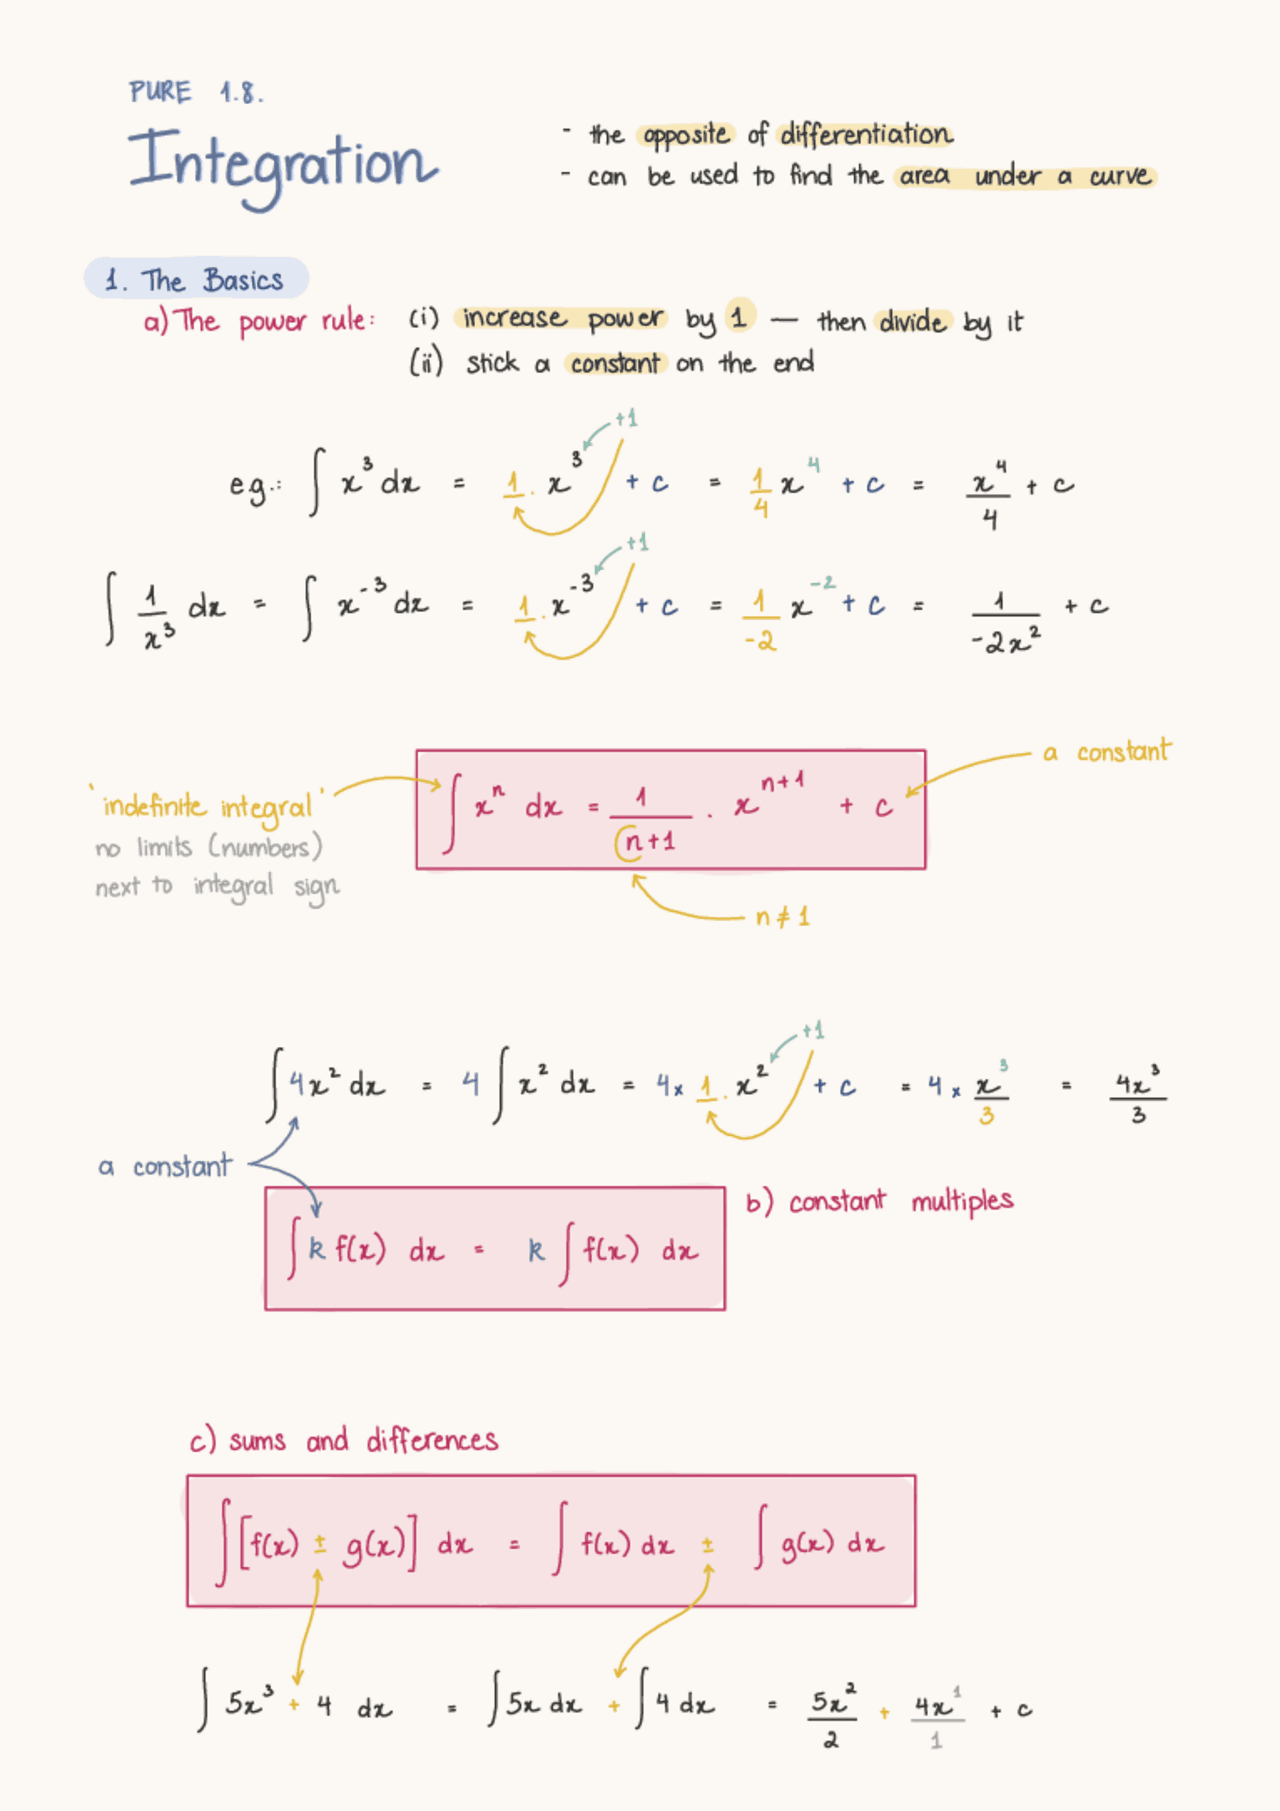 PURE 1.8.
Integration
- the opposite of differentiation
- can be used to find the area under a curve
1. The Basics
a) The power rule: (i) increase power by 1 — then divide by it
(ii) stick a constant on the end
+1
e.g.: ∫ x³ dx = 1/ . x³ + c = 1/4 x⁴ + c = x⁴/4 + c
+1
∫ 1/x³ dx = ∫ x⁻³ dx = 1/ . x⁻³ + c = 1/-2 x⁻² + c = 1/-2x² + c
a constant
'indefinite integral'
no limits (numbers)
next to integral sign
∫ xⁿ dx = 1/n+1 . xⁿ⁺¹ + c
n ≠ 1
+1
∫ 4x² dx = 4 ∫ x² dx = 4 x 1/ . x² + c = 4 x x³/3 = 4x³/3
a constant
b) constant multiples
∫ k f(x) dx = k ∫ f(x) dx
c) sums and differences
∫ [f(x) ± g(x)] dx = ∫ f(x) dx ± ∫ g(x) dx
∫ 5x³ + 4 dx = ∫ 5x dx + ∫ 4 dx = 5x²/2 + 4x¹/1 + c